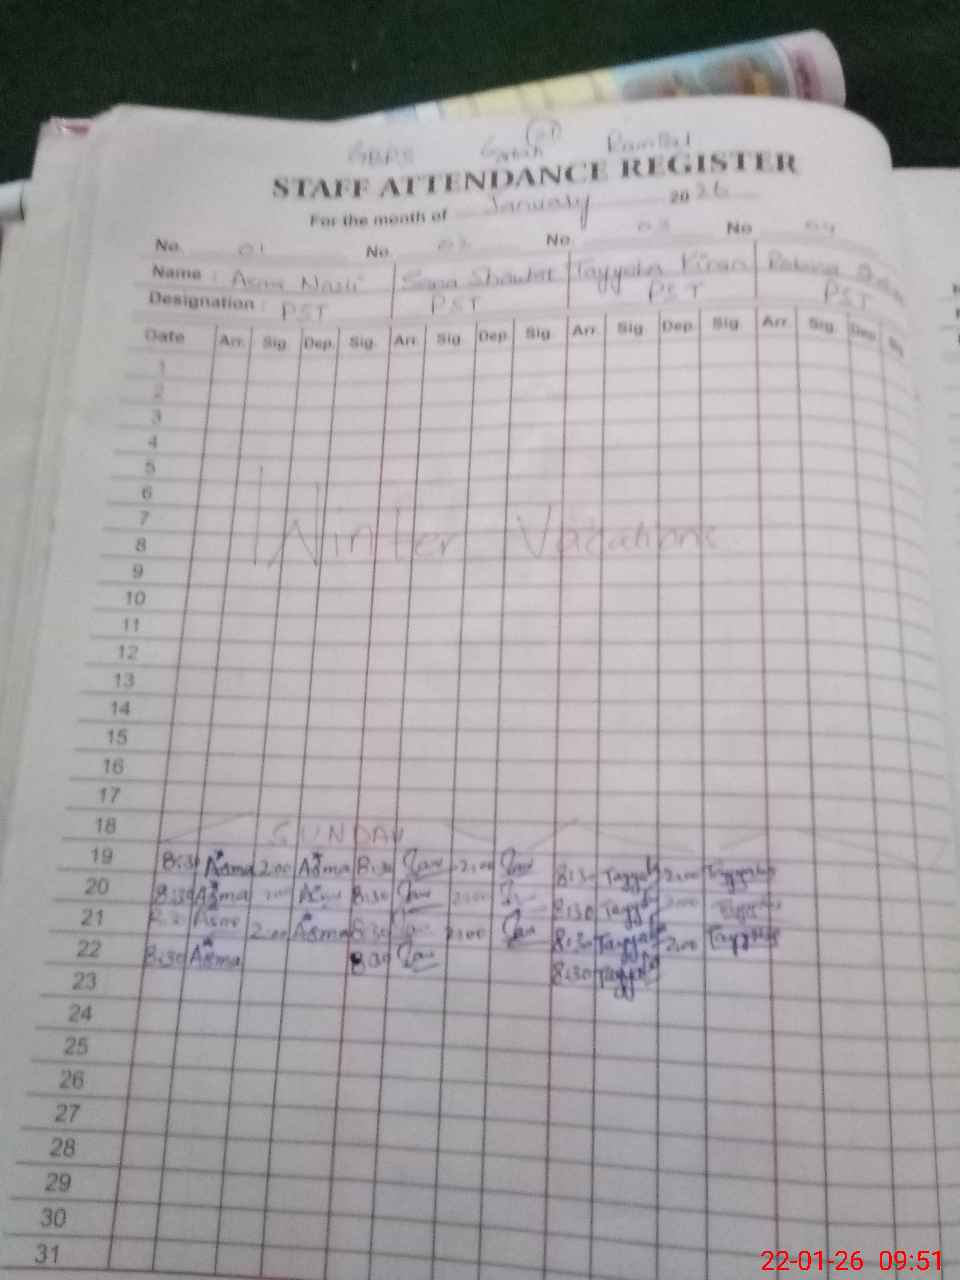 GBPS Rambal
STAFF ATTENDANCE REGISTER
For the month of January 2026
No. 01 No. 02 No. 03 No. 04
Name : Asma Sana Shaukat Tayyaba Kiran
Designation : PST PST PST PST
Date Arr. Sig. Dep. Sig. Arr. Sig. Dep. Sig. Arr. Sig. Dep. Sig. Arr. Sig. Dep. Sig.
1
2
3
4
5
6
7
Winter Vacations
8
9
10
11
12
13
14
15
16
17
18 SUNDAY
19 8:30 Asma 2:00 Asma 8:30 2:00 8:30 Tayyab 2:00 Tayyaba
20 8:30 Asma 2:00 Asma 8:30 2:00 8:30 Tayyab 2:00 Tayyaba
21 8:30 Asma 2:00 Asma 8:30 2:00 8:30 Tayyab 2:00 Tayyaba
22 8:30 Asma 8:30 8:30 Tayyab
23
24
25
26
27
28
29
30
31
22-01-26 09:51